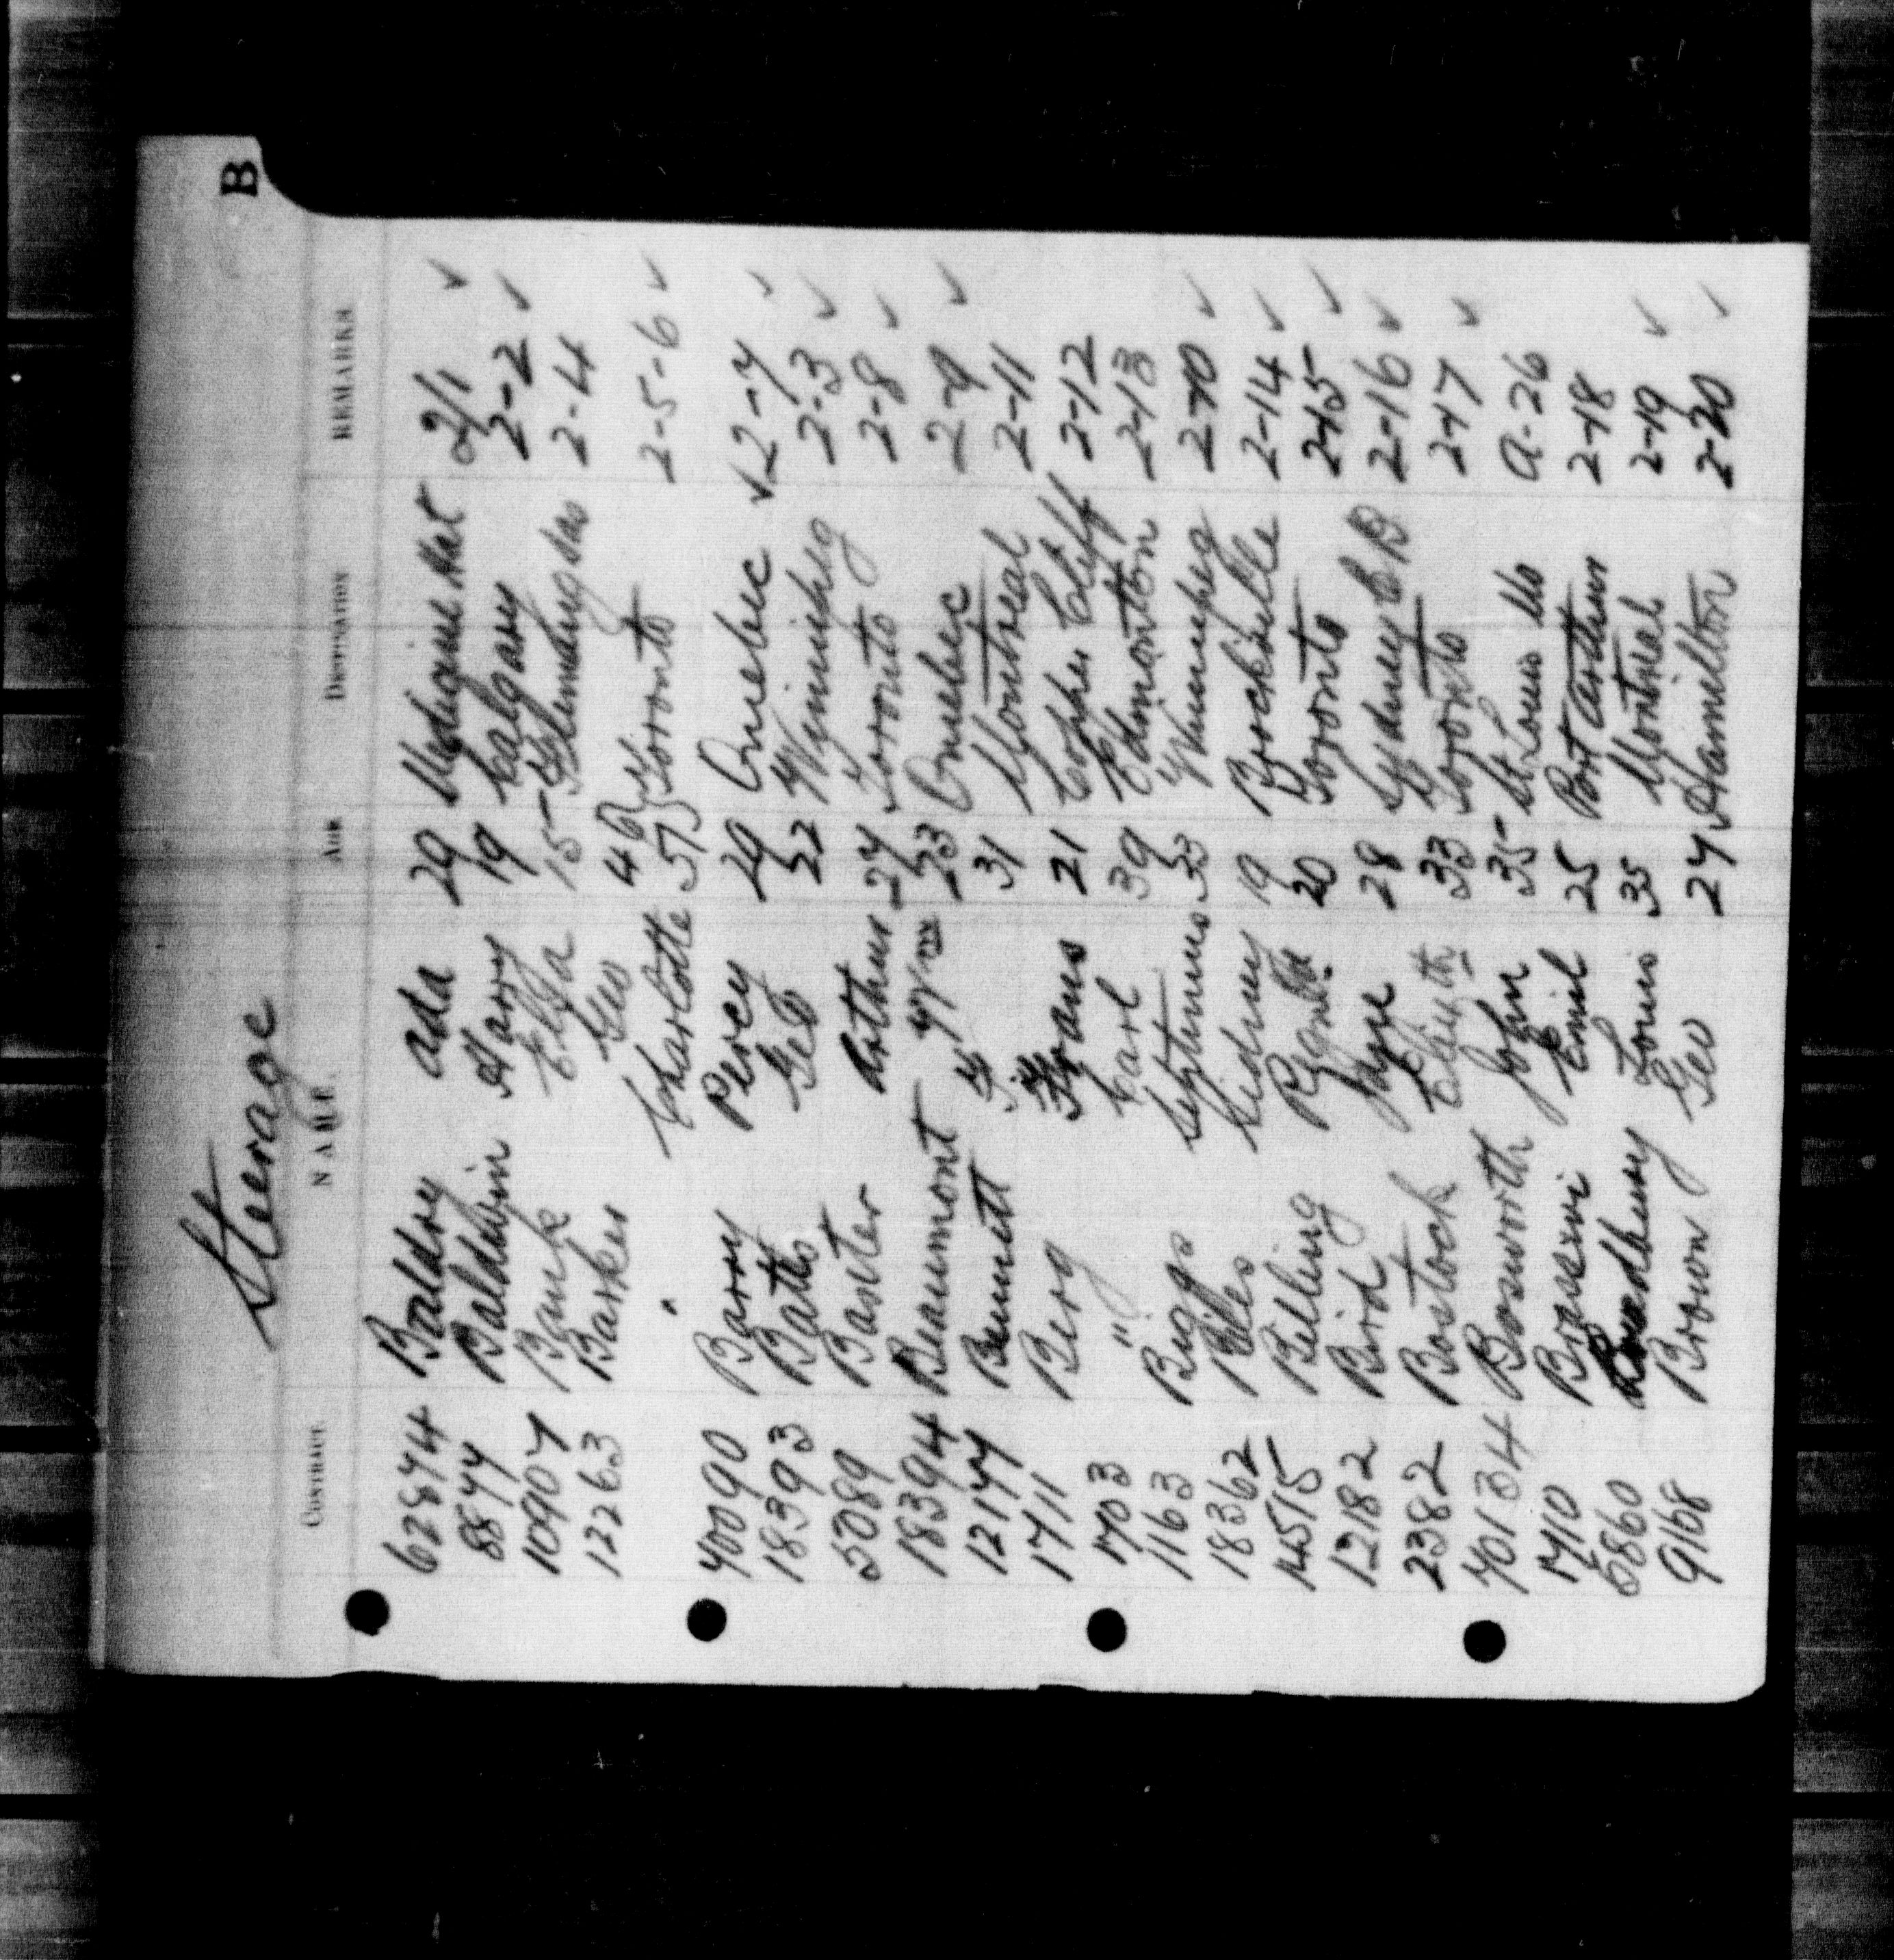 B
Steerage
CONTRACT NAME AGE DESTINATION REMARKS
62874 Baldry Ada 29 Medicine Hat 2/1 ✓
8877 Baldwin Harry 19 Calgary 2-2 ✓
10907 Bank Eliza 15 2-4
12263 Barker Geo 46 Toronto 2-5-6 ✓
" Charlotte 57
70090 Barry Percy 29 Quebec ✓ 2-7 ✓
18393 Batts Geo 22 Winnipeg 2-3 ✓
5089 Baxter Arthur 27 Toronto 2-8 ✓
18394 Beaumont Wm 23 Quebec 2-9 ✓
12177 Bennett F 31 Montreal 2-11
1711 Berg Frans 21 Copper Cliff 2-12
1703 " Carl 39 Edmonton 2-13
1163 Biggs Septimus 33 Winnipeg 2-10 ✓
18362 Biles Sidney 19 Brockville 2-14 ✓
14515 Billing Regnld. 20 Toronto 2-15 ✓
12182 Bird 28 Sydney C B 2-16 ✓
2382 Bostock Elizth 33 Toronto 2-17 ✓
70134 Bosworth John 35 St Louis Mo A-26
1710 Emil 25 Port Arthur 2-18
6860 Louis 35 Montreal 2-19 ✓
9168 Brown Geo 27 Hamilton 2-20 ✓